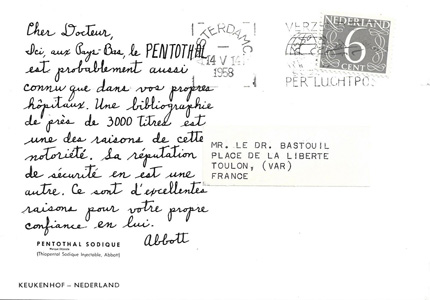 Cher Docteur,
Ici, aux Pays-Bas, le PENTOTHAL
est probablement aussi
connu que dans vos propres
hôpitaux. Une bibliographie
de près de 3000 titres est
une des raisons de cette
notoriété. Sa réputation
de sécurité en est une
autre. Ce sont d'excellentes
raisons pour votre propre
confiance en lui.
Abbott
PENTOTHAL SODIQUE
(Thiopental Sodique Injectable, Abbott)
KEUKENHOF – NEDERLAND
STERDAM
14 V 
1958
VERZE
PER LUCHTPO
NEDERLAND
6
CENT
MR. LE DR. BASTOUIL
PLACE DE LA LIBERTE
TOULON, (VAR)
FRANCE